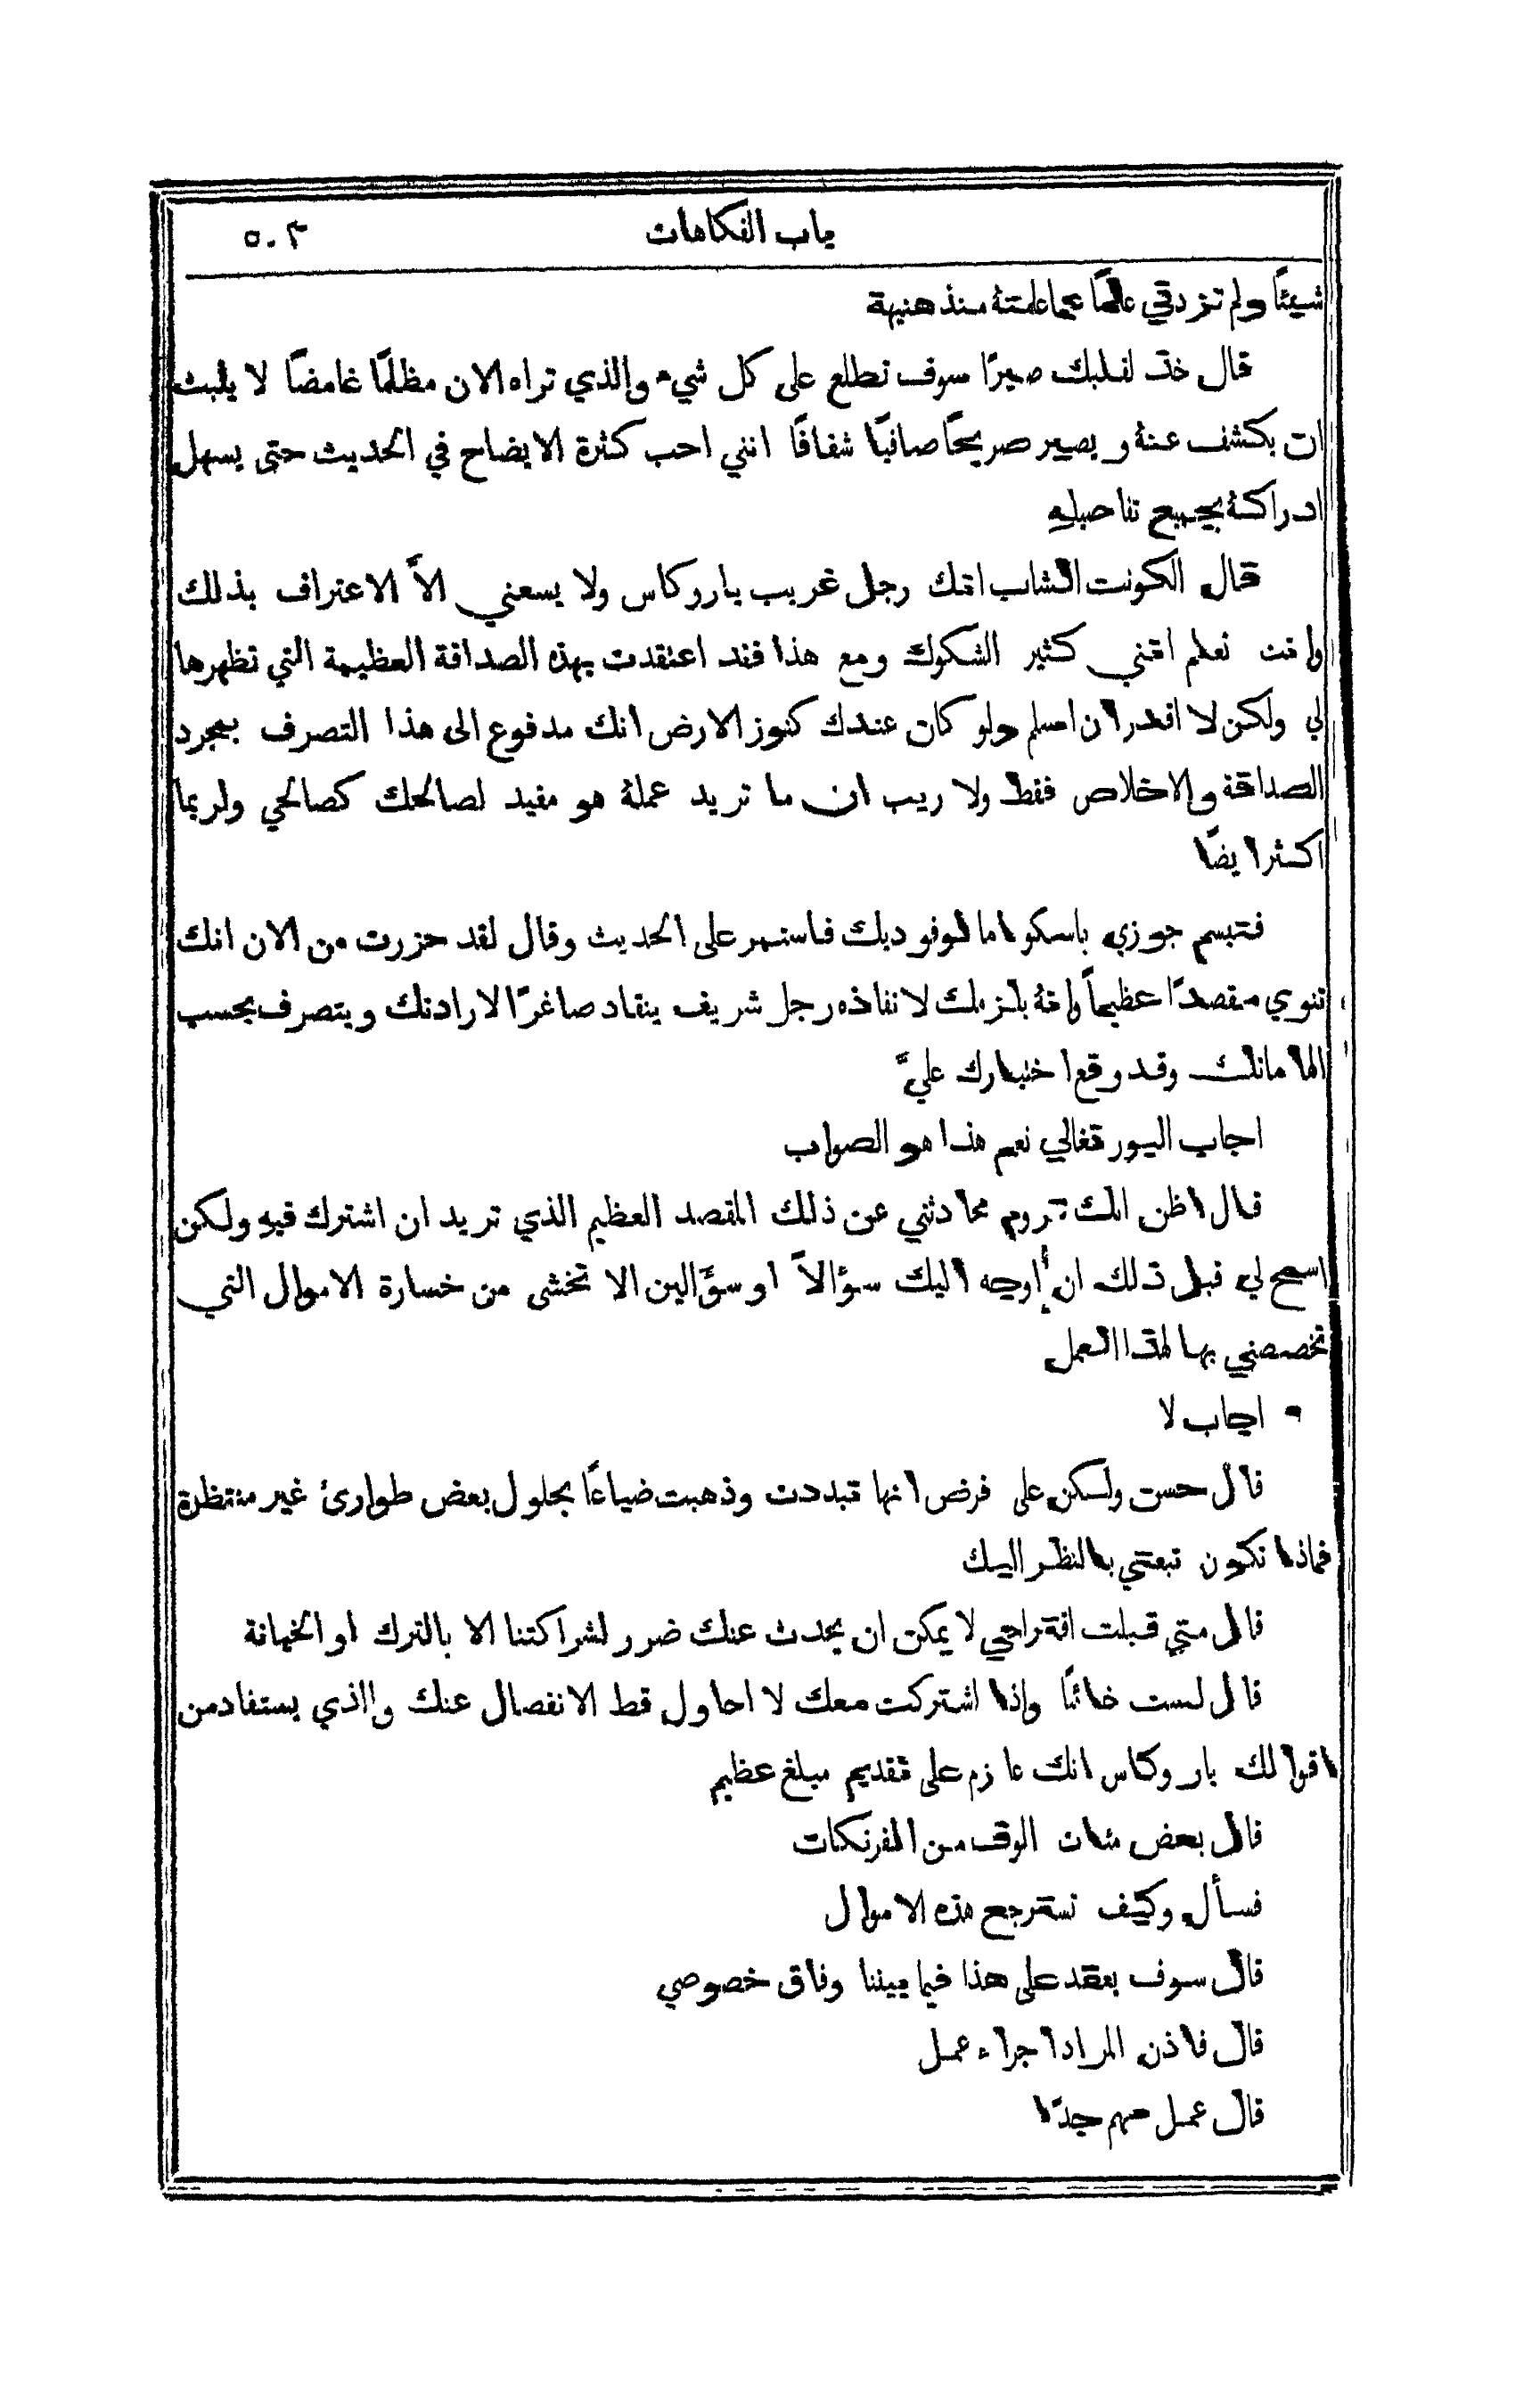 باب الفكاهات
٥٠٣
شيئًا ولم تزدني علمًا عما علمتهُ منذ هنيهة
قال خذ لقلبك صبرًا سوف تطلع على كل شيء والذي تراه الان مظلمًا غامضًا لا يلبث
ان يكشف عنهُ ويصير صريحًا صافيًا شفافًا انني احب كثرة الايضاح في الحديث حتى يسهل
ادراكهُ بجميع تفاصيلهِ
قال الكونت الشاب انك رجل غريب ياروكاس ولا يسعني الاَّ الاعتراف بذلك
وانت تعلم انني كثير الشكوك ومع هذا فقد اعتقدت بهذه الصداقة العظيمة التي تظهرها
لي ولكن لا اقدر ان اسلم ولو كان عندك كنوز الارض انك مدفوع الى هذا التصرف بمجرد
الصداقة والاخلاص فقط ولا ريب ان ما تريد عملهُ هو مفيد لصالحك كصالحي ولربما
اكثر ايضًا
فتبسم جوزي باسكو اما لوفوديك فاستمر على الحديث وقال لقد حزرت من الان انك
تنوي مقصدًا عظيماً وانهُ يلزملك لانفاذه رجل شريف ينقاد صاغرًا لارادتك ويتصرف بحسب
الهاماتك وقد وقع اختيارك عليَّ
اجاب البورتغالي نعم هذا هو الصواب
قال اظن انك تروم محادثتي عن ذلك المقصد العظيم الذي تريد ان اشترك فيهِ ولكن
اسمح لي قبل ذلك ان أوجه اليك سؤالاً او سؤَالين الا تخشى من خسارة الاموال التي
تخصصني بها لهذا العمل
اجاب لا
قال حسن ولكن على فرض انها تبددت وذهبت ضياعًا بحلول بعض طوارئ غير منتظرة
فماذا تكون تبعتي بالنظر اليك
قال متى قبلت اقتراحي لا يمكن ان يحدث عنك ضرر لشراكتنا الا بالترك او الخيانة
قال لست خائنًا واذا اشتركت معك لا احاول قط الانفصال عنك والذي يستفاد من
اقوالك ياروكاس انك عازم على تقديم مبلغ عظيم
قال بعض مئات الوف من الفرنكات
فسأل وكيف تسترجع هذه الاموال
قال سوف يعقد على هذا فيما بيننا وفاق خصوصي
قال فاذن المراد اجراء عمل
قال عمل مهم جدًا